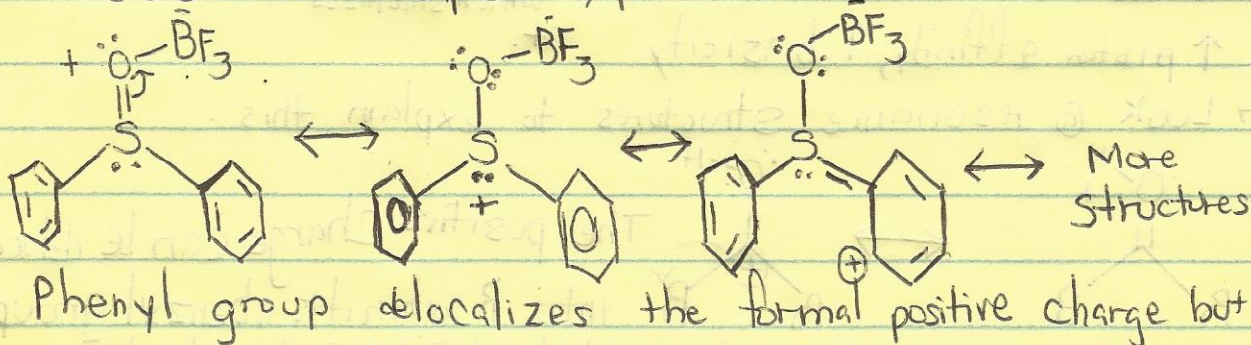 + O BF3 O BF3 O BF3
S S S More
+ + structures
Phenyl group delocalizes the formal positive charge but